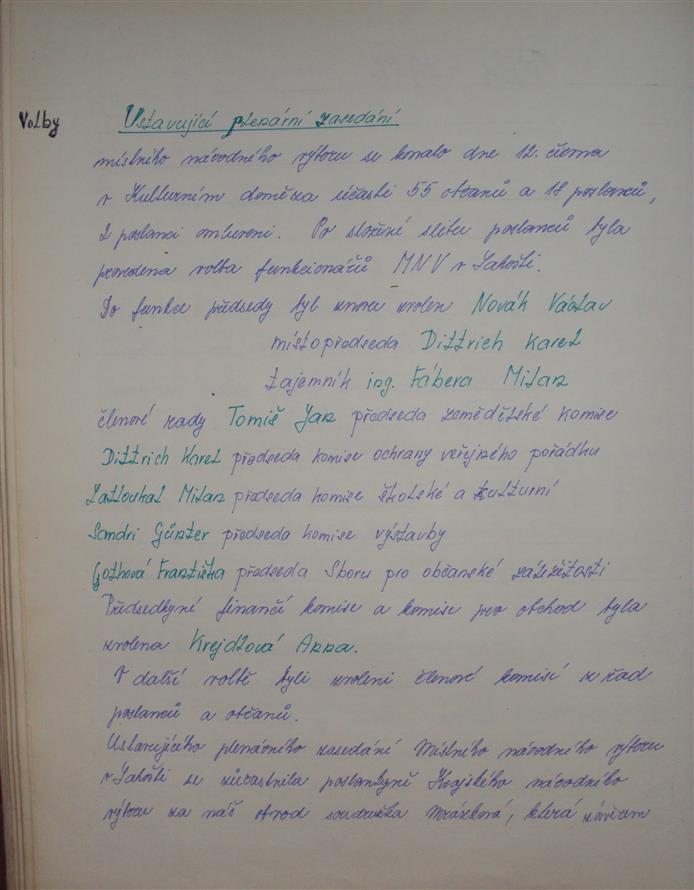 Volby
Ustavující plenární zasedání
místního národného výboru se konalo dne 12. června
v Kulturním domě za účasti 55 občanů a 18 poslanců,
2 poslanci omluveni. Po složení slibu poslanců byla
provedena volba funkcionářů MNV v Lahošti.
Do funkce předsedy byl znovu zvolen Novák Václav
místopředseda Dittrich Karel
tajemník ing. Fábera Milan
členové rady Tomiš Jan předseda zemědělské komise
Dittrich Karel předseda komise ochrany veřejného pořádku
Zatloukal Milan předseda komise školské a kulturní
Sandri Günter předseda komise výstavby
Gothová Františka předseda Sboru pro občanské záležitosti
Předsedkyně finančí komise a komise pro obchod byla
zvolena Krejdlová Anna.
V další volbě byli zvoleni členové komisí z řad
poslanců a občanů.
Ustavujícího plenárního zasedání Místního národného výboru
v Lahošti se zúčastnila poslankyně Krajského národného
výboru za náš obvod soudružka Mrázková, která závěrem